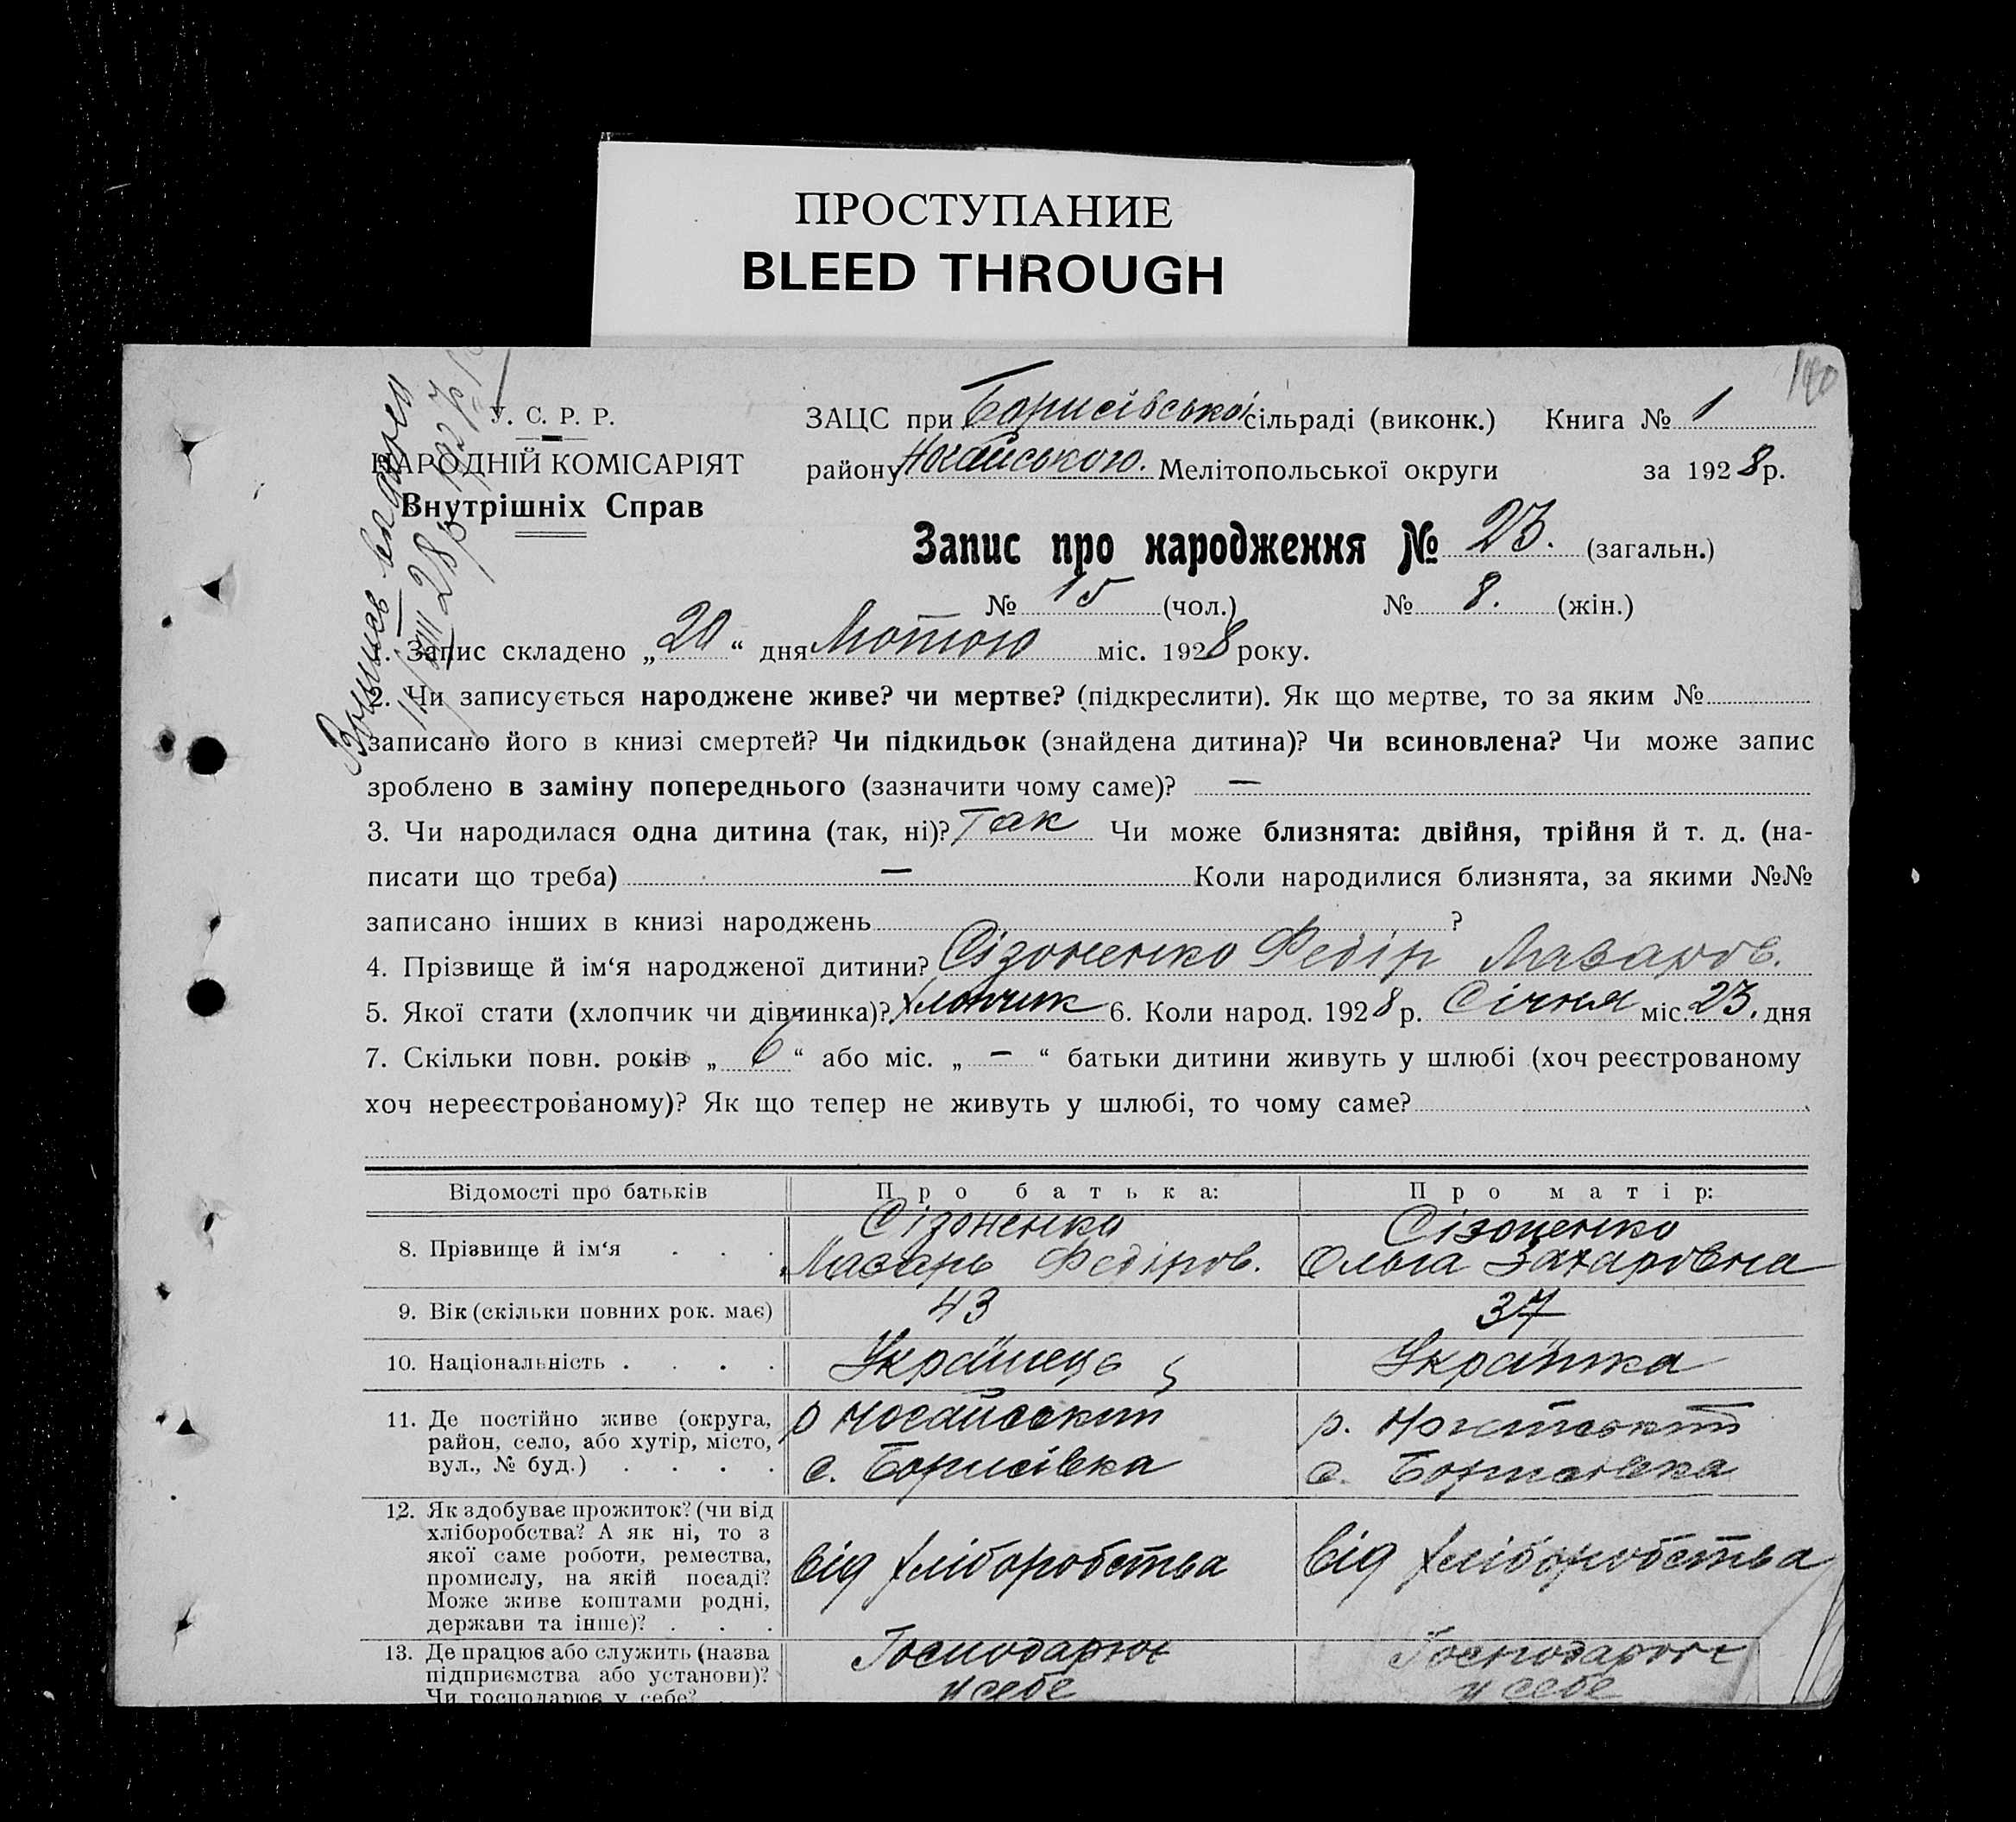 ПРОСТУПАНИЕ
BLEED THROUGH
140
У. С. Р. Р.
НАРОДНІЙ КОМІСАРІЯТ
Внутрішніх Справ
ЗАЦС при Борисівської сільраді (виконк.) Книга № 1
району Ногайського. Мелітопольської округи за 1928 р.
Запис про народження № 23. (загальн.)
№ 15 (чол.) № 8. (жін.)
1. Запис складено „ 20 “ дня Лютого міс. 1928 року.
2. Чи записується народжене живе? чи мертве? (підкреслити). Як що мертве, то за яким №
записано його в книзі смертей? Чи підкидьок (знайдена дитина)? Чи всиновлена? Чи може запис
зроблено в заміну попереднього (зазначити чому саме)? —
3. Чи народилася одна дитина (так, ні)? Так Чи може близнята: двійня, трійня й т. д. (на-
писати що треба) — Коли народилися близнята, за якими №№
записано інших в книзі народжень ?
4. Прізвище й ім‘я народженої дитини? Сізоненко Федір Лазаров.
5. Якої стати (хлопчик чи дівчинка)? Хлопчик 6. Коли народ. 1928 р. Січня міс. 23. дня
7. Скільки повн. років „ 6 “ або міс. „ — “ батьки дитини живуть у шлюбі (хоч реєстрованому
хоч нереєстрованому)? Як що тепер не живуть у шлюбі, то чому саме?
Відомості про батьків Про батька: Про матір:
8. Прізвище й ім‘я . . . Сізоненко Лазарь Федіров. Сізоненко Ольга Захаровна
9. Вік (скільки повних рок. має) 43 37
10. Національність . . . . Українець Українка
11. Де постійно живе (округа,
район, село, або хутір, місто,
вул., № буд.) . . . .
р Ногайський
с. Борисівка
р. Ногайський
с. Борисівка
12. Як здобуває прожиток? (чи від
хліборобства? А як ні, то з
якої саме роботи, ремества,
промислу, на якій посаді?
Може живе коштами родні,
держави та інше)? . . .
від хліборобства
від хліборобства
13. Де працює або служить (назва
підприємства або установи)?
Чи господарює у себе?
Господарює
у себе
Господарює
у себе